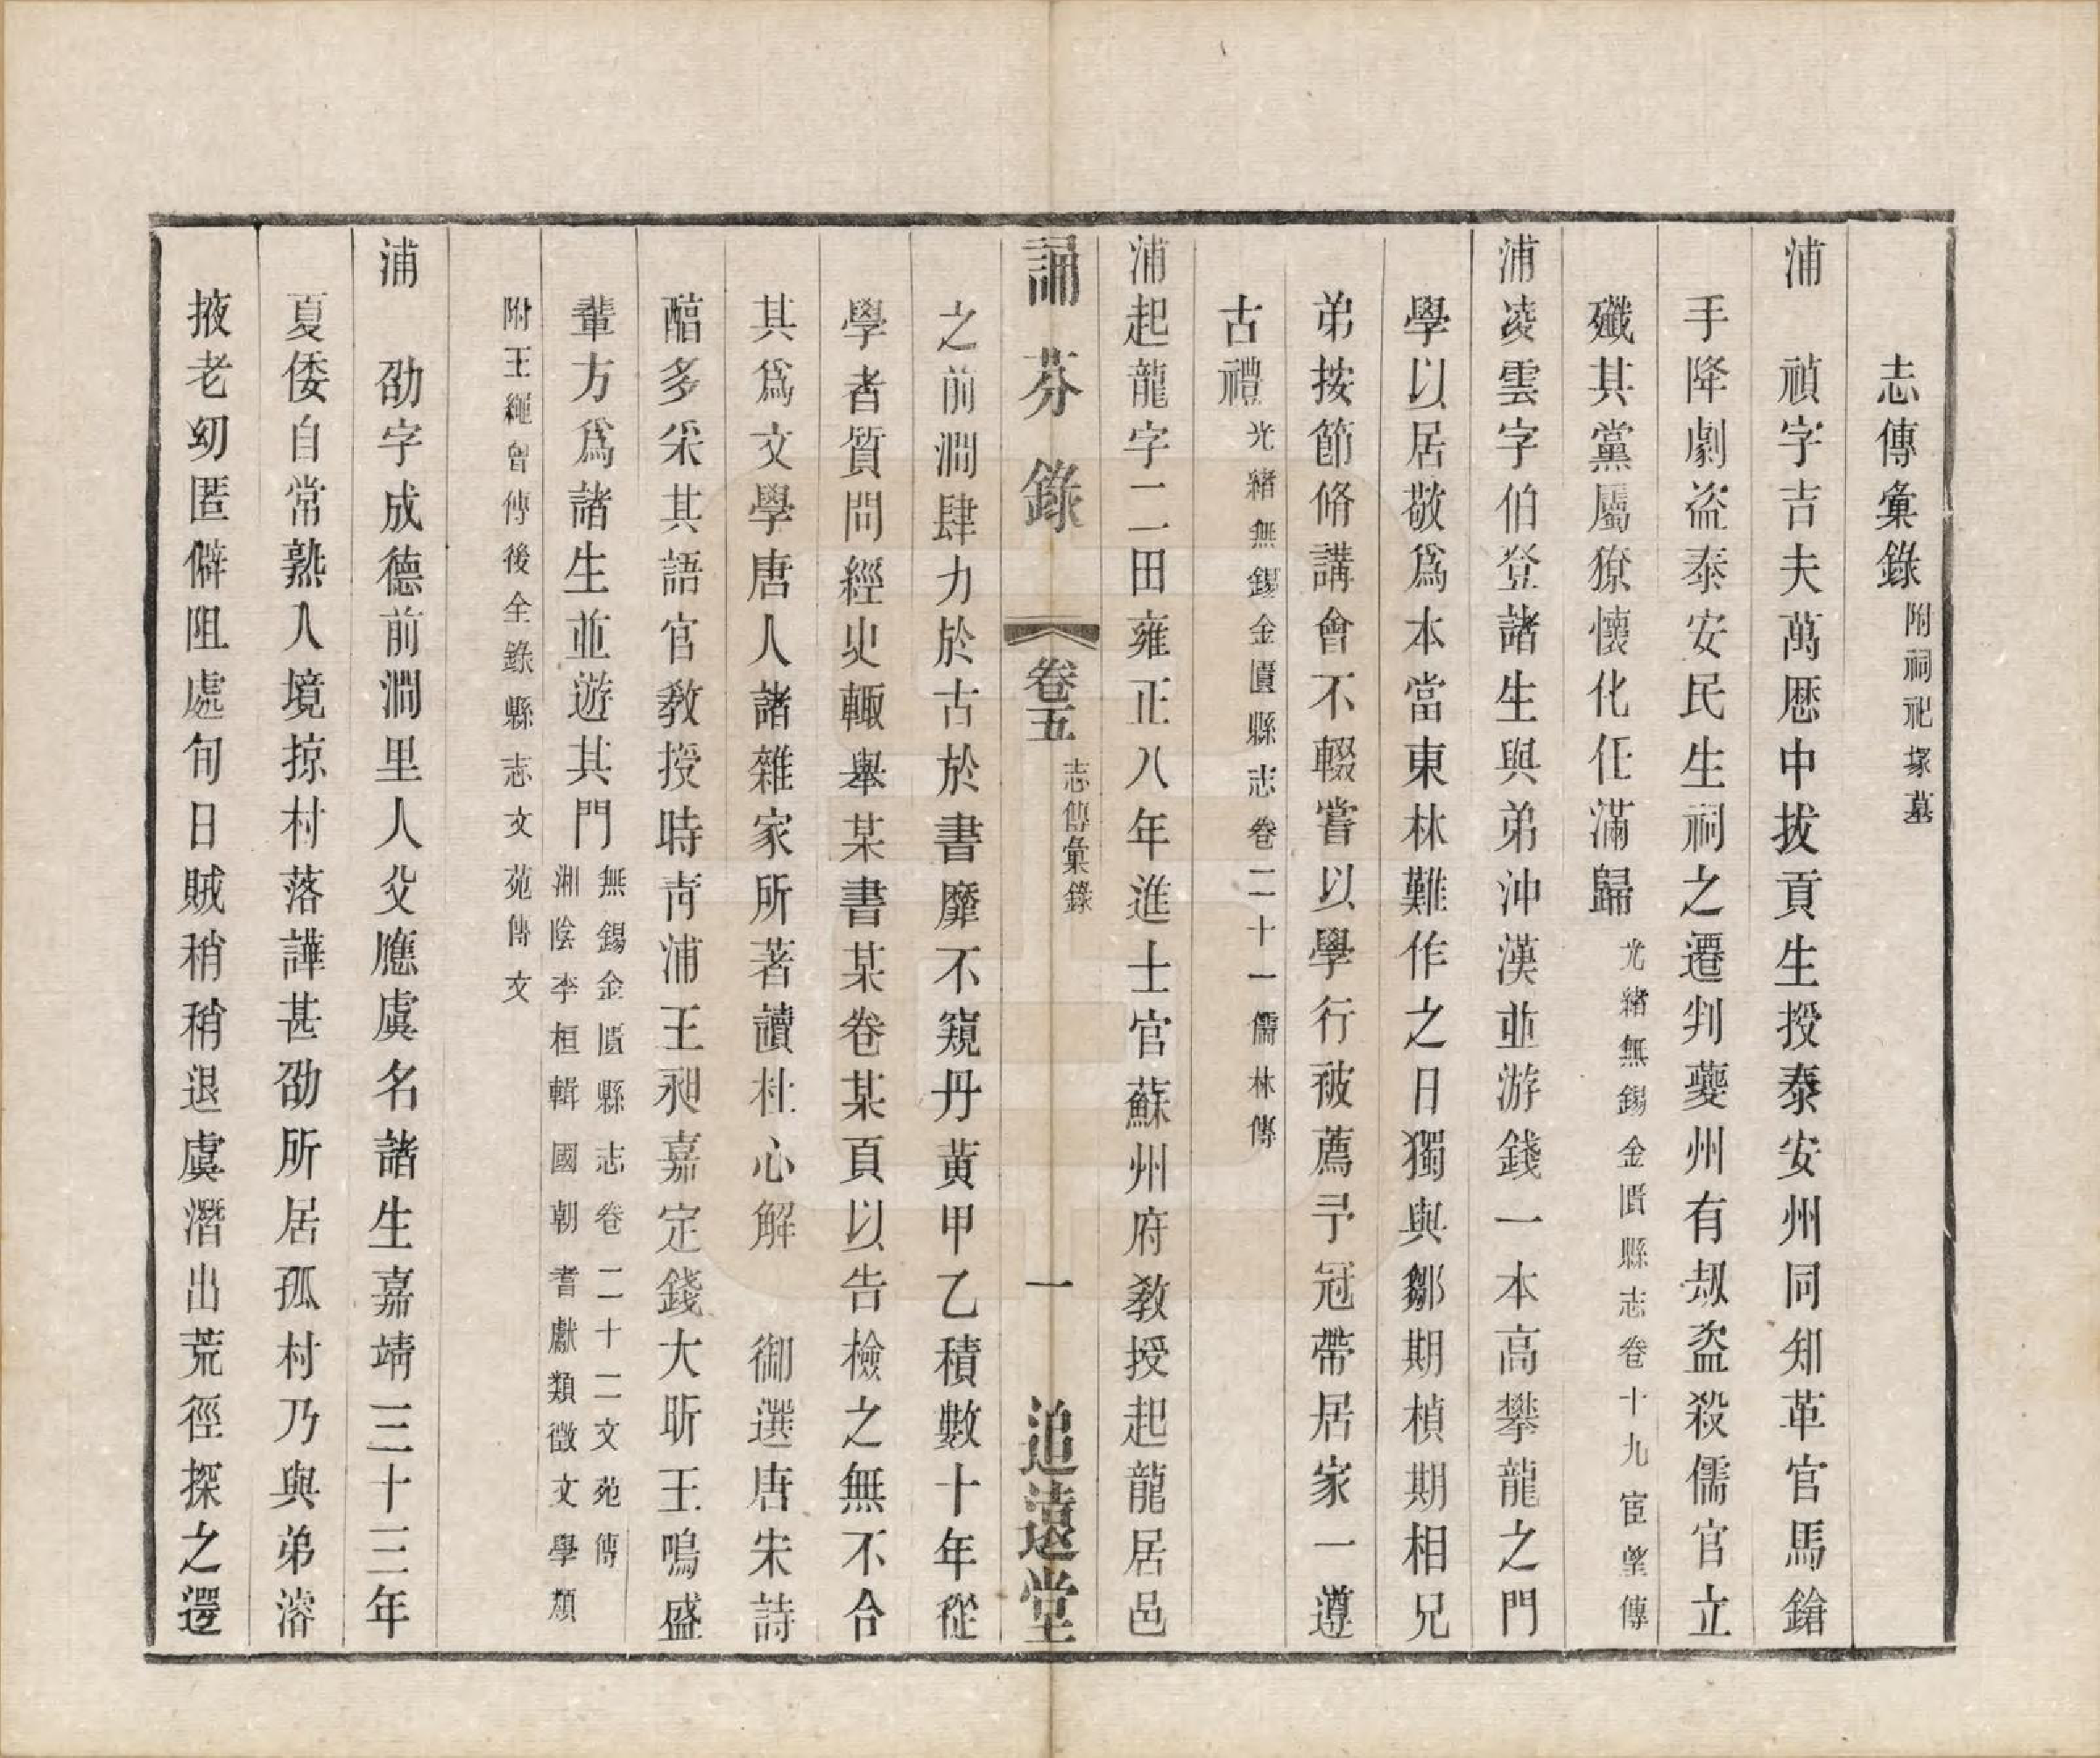 志傳彙錄附祠祀塚墓
浦　禎字吉夫萬厯中拔貢生授泰安州同知革官馬鎗
手降劇盗泰安民生祠之遷判夔州有刼盗殺儒官立
殲其黨屬獠懷化任滿歸光緒無錫金匱縣志卷十九宦望傳
浦凌雲字伯登諸生與弟沖漢並游錢一本高攀龍之門
學以居敬爲本當東林難作之日獨與鄒期楨期相兄
弟按節脩講會不輟嘗以學行被薦予冠帶居家一遵
古禮光緒無錫金匱縣志卷二十一儒林傳
浦起龍字二田雍正八年進士官蘇州府敎授起龍居邑
誦芬錄　卷五　志傳彙錄　一　追遠堂
之前澗肆力於古於書靡不窺丹黄甲乙積數十年從
學者質問經史輒舉某書某卷某頁以告檢之無不合
其爲文學唐人諸雜家所著讀杜心解　御選唐朱詩
醕多采其語官敎授時青浦王昶嘉定錢大昕王鳴盛
輩方爲諸生並遊其門無錫金匱縣志卷二十二文苑傳
湘陰李桓輯國朝耆獻類徵文學類
附王繩曾傳後全錄縣志文苑傳文
浦　劭字成德前澗里人父應虞名諸生嘉靖三十三年
夏倭自常熟入境掠村落譁甚劭所居孤村乃與弟濬
掖老幼匿僻阻處旬日賊稍稍退虞潛出荒徑探之還